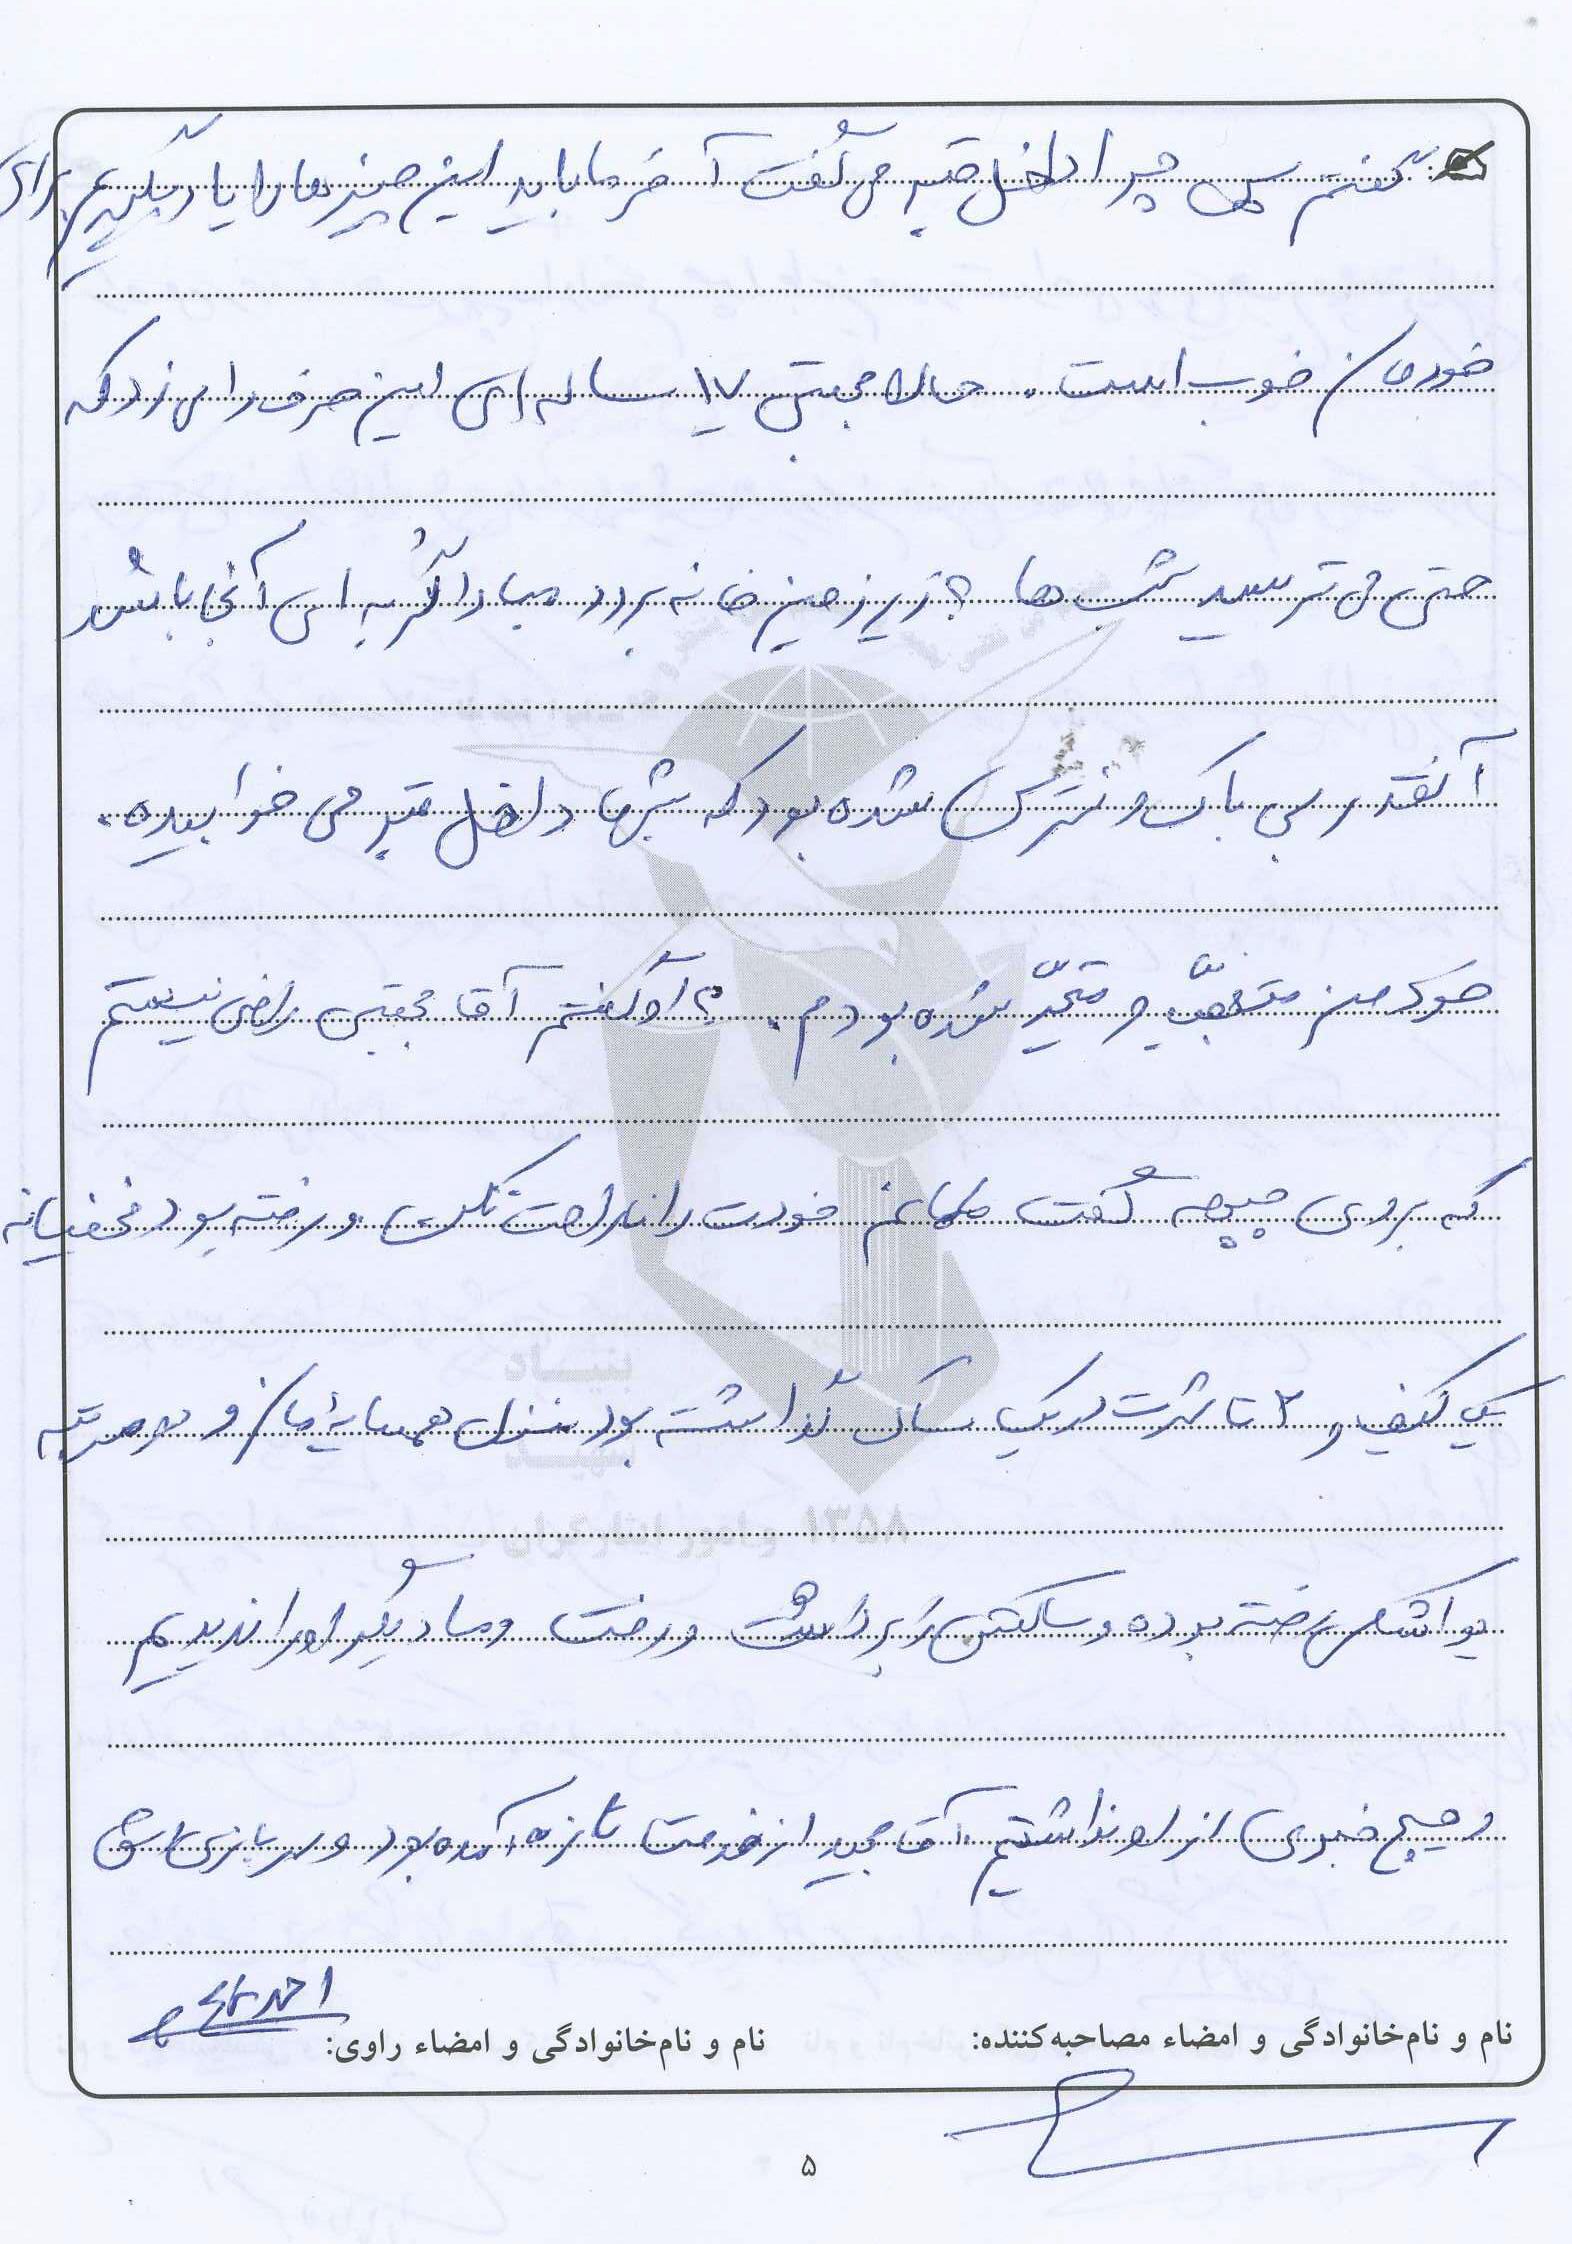 گفتم پس چرا داخل قبر می گفت آخر ما باید این چیزها را یاد بگیریم برای
خودمان خوب است . حالا مجتبی ۱۷ ساله ای این حرف را می زد که
حتی می ترسید شب ها به زیرزمین خانه برود مبادا گربه ای آنجا باشد
آنقدر بی باک و نترس شده بود که شبها داخل قبر می خوابیده .
که من متعجب و متحیّر شده بودم . به او گفتم آقا مجتبی راضی نیستم
که بروی جبهه گفت مامان خودت را ناراحت نکن و رفته بود مخفیانه
یک کیف و ۲ تا شرت در یک ساک گذاشته بود منزل همسایۀ مان و هر مرتبه
یواشکی رفته بوده و ساکش را برداشت و رفت و ما دیگر او را ندیدیم
و هیچ خبری از او نداشتیم آقا مجید از خدمت تازه آمده بود و سربازی اش
نام و نام‌خانوادگی و امضاء مصاحبه‌کننده:
نام و نام‌خانوادگی و امضاء راوی:
بنیاد
شهید
و امور ایثارگران ۱۳۵۸
۵